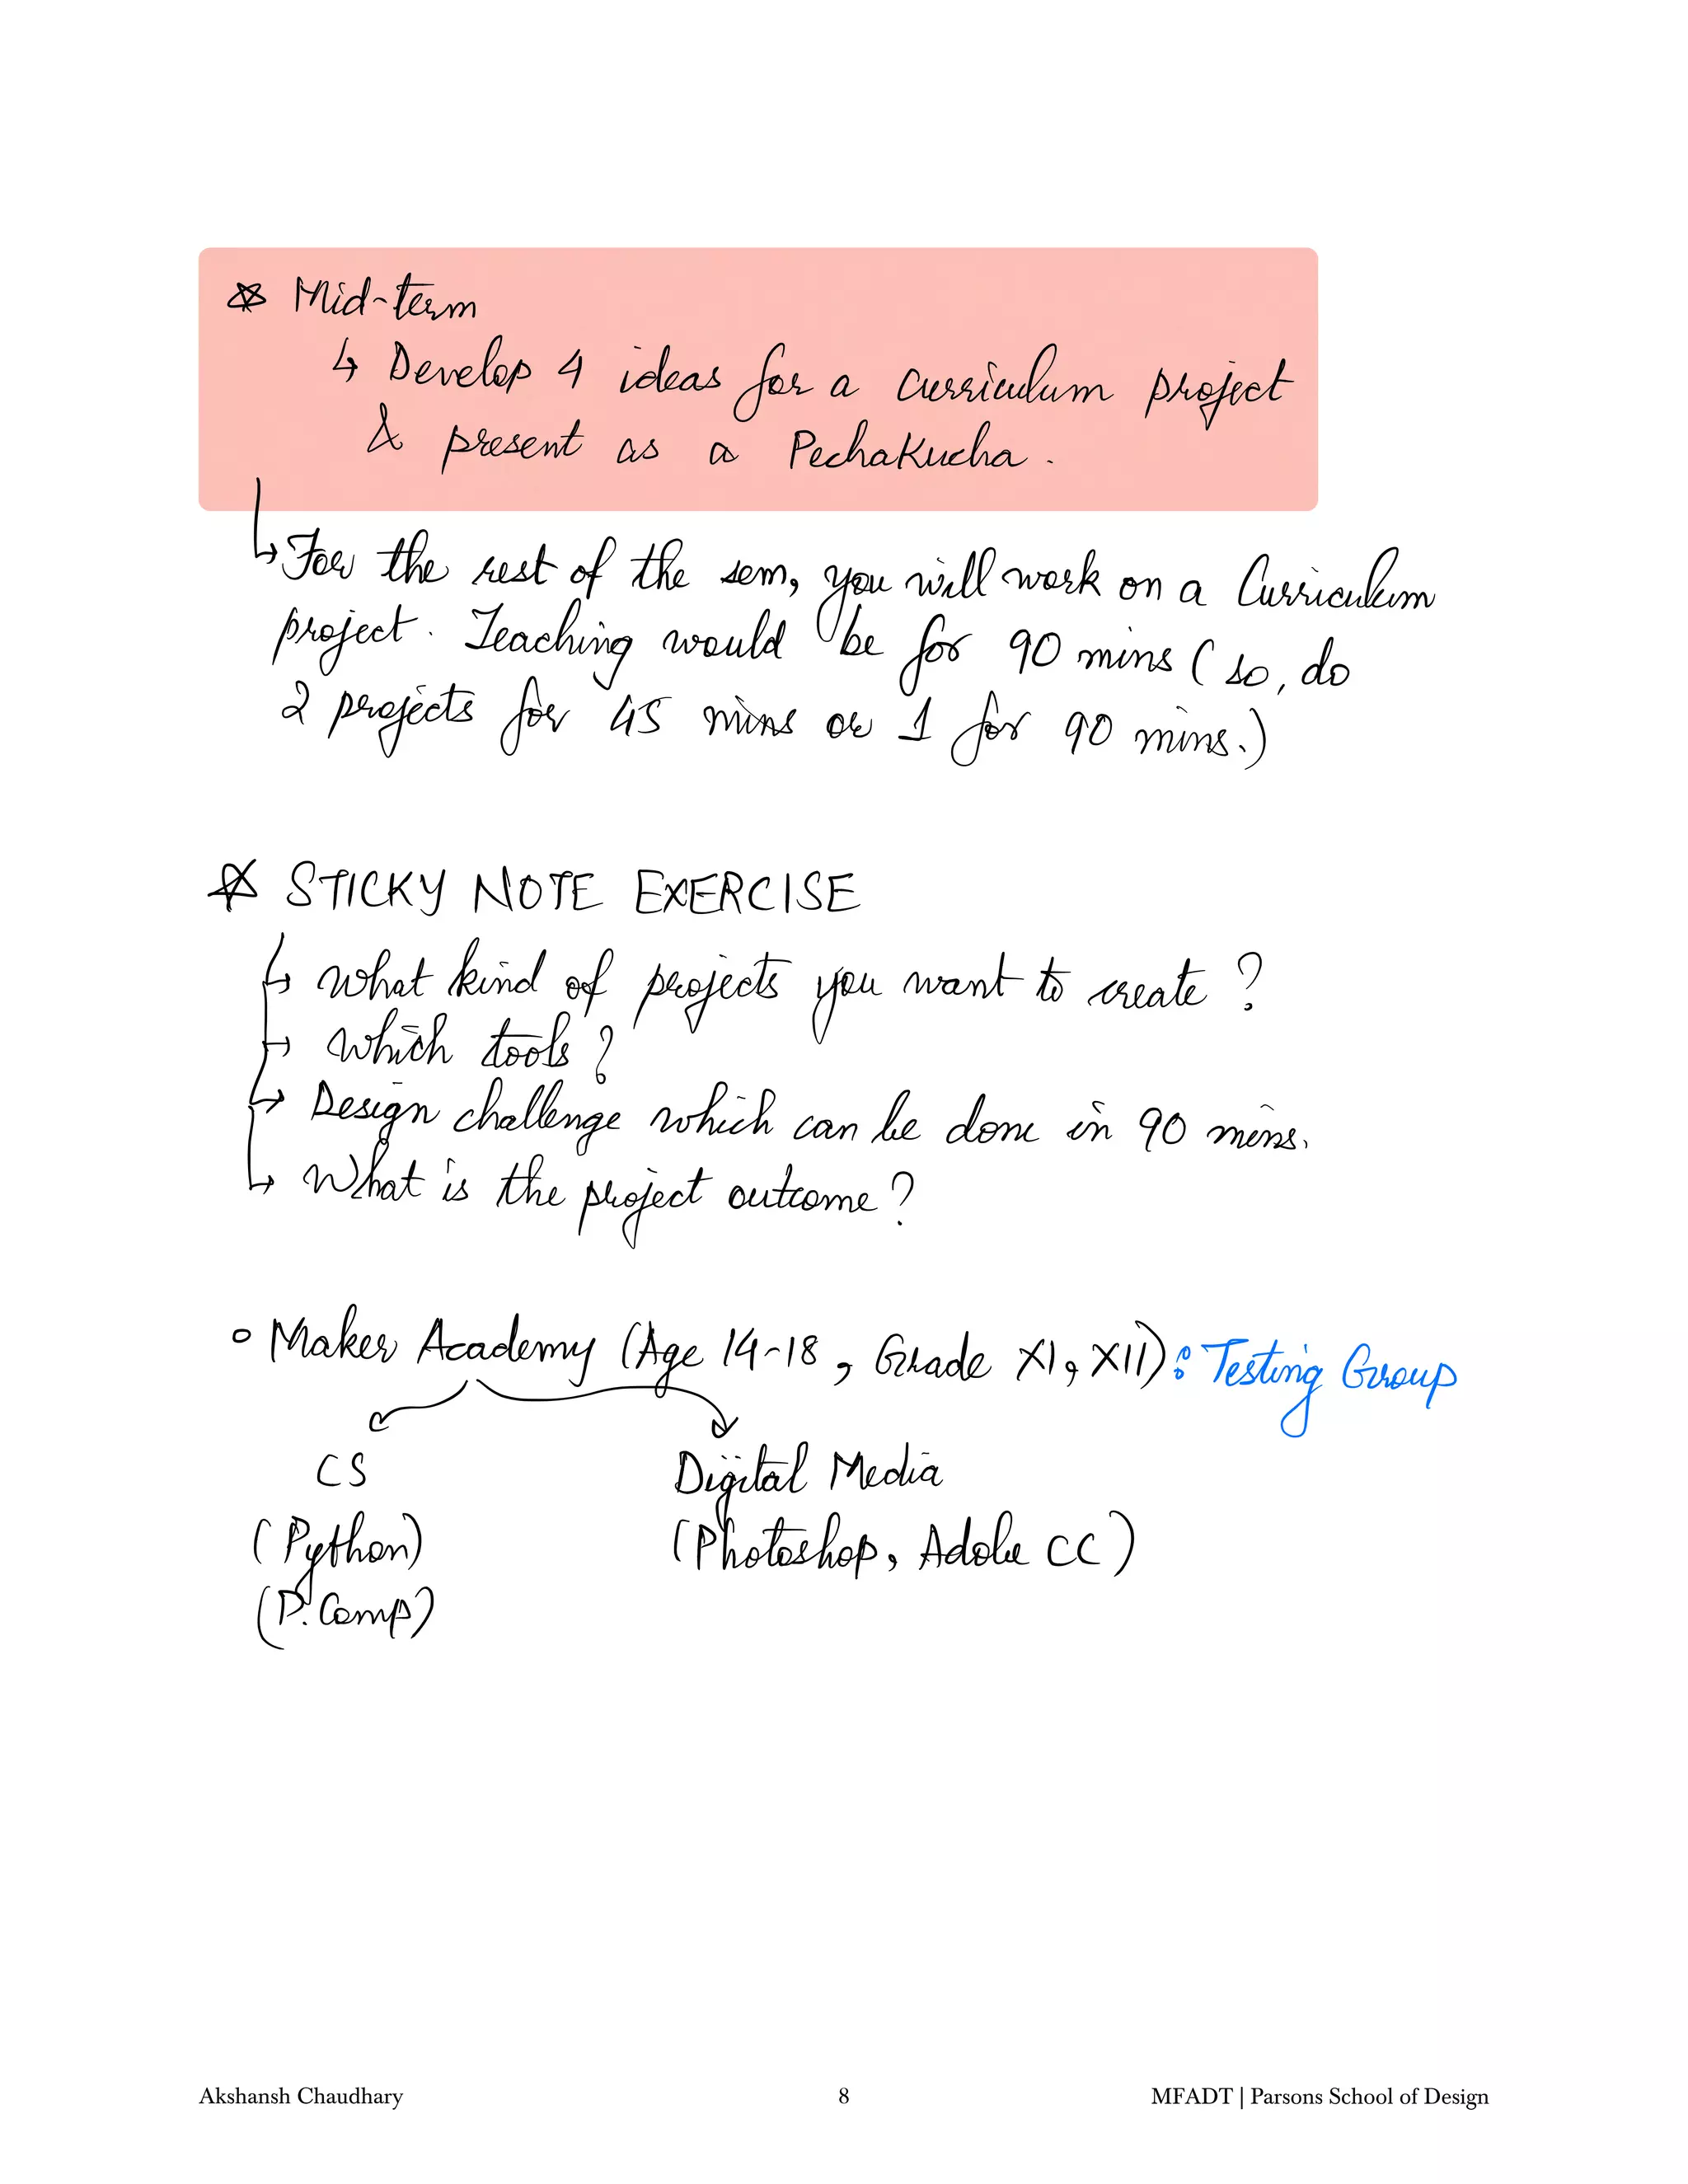 ☆ Mid-term
↳ Develop 4 ideas for a curriculum project
& present as a PechaKucha.
↳ For the rest of the sem, you will work on a Curriculum
project. Teaching would be for 90 mins (so, do
2 projects for 45 mins or 1 for 90 mins.)
☆ STICKY NOTE EXERCISE
↳ What kind of projects you want to create?
↳ Which tools?
↳ Design challenge which can be done in 90 mins.
↳ What is the project outcome?
° Maker Academy (Age 14-18, Grade XI, XII): Testing Group
CS Digital Media
(Python) (Photoshop, Adobe CC)
(P. Comp)
Akshansh Chaudhary 8 MFADT | Parsons School of Design